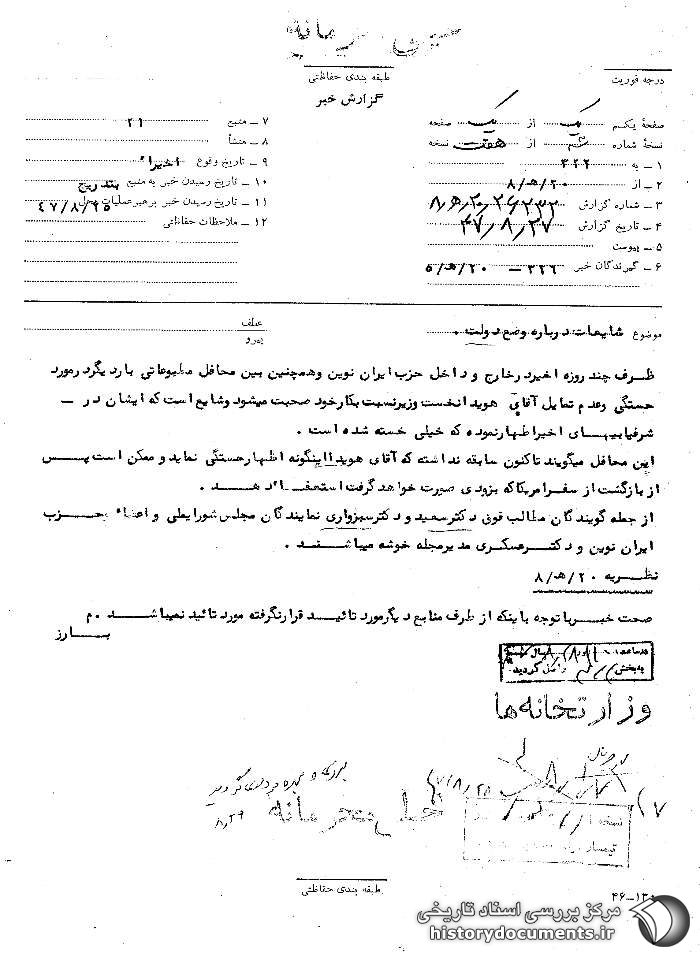 خیلی محرمانه
طبقه بندی حفاظتی
گزارش خبر
درجه فوریت
صفحهٔ یکم یک از یک صفحه
نسخهٔ شماره از هفت نسخه
۱ – به ۳۲۲
۲ – از ۲۰/هـ/۸
۳ – شماره گزارش
۴ – تاریخ گزارش ۴۷/۸/۲۷
۵ – پیوست
۶ – گیرندگان خبر ۳۲۶ – ۲۰/هـ/۵
۷ – منبع ۲۱
۸ – منشأ
۹ – تاریخ وقوع اخیراً
۱۰ – تاریخ رسیدن خبر به منبع بتدریج
۱۱ – تاریخ رسیدن خبر برهبر عملیات محل ۴۷/۸/۲۵
۱۲ – ملاحظات حفاظتی
موضوع شایعات درباره وضع دولت .
عطف
پیرو
ظرف چند روزه اخیر در خارج و داخل حزب ایران نوین و همچنین بین محافل مطبوعاتی بار دیگر در مورد
خستگی و عدم تمایل آقای هویدا نخست وزیر نسبت بکار خود صحبت میشود و شایع است که ایشان در –
شرفیابیهای اخیر اظهار نموده که خیلی خسته شده است .
این محافل میگویند تاکنون سابقه نداشته که آقای هویدا اینگونه اظهار خستگی نماید و ممکن است پس
از بازگشت از سفر امریکا که بزودی صورت خواهد گرفت استعفا دهد .
از جمله گویندگان مطالب فوق دکتر سعید و دکتر سبزواری نمایندگان مجلس شورایملی و اعضاء حزب
ایران نوین و دکتر عسکری مدیر مجله خوشه میباشند .
نظریه ۲۰/هـ/۸
صحت خبر با توجه باینکه از طرف منابع دیگر مورد تائید قرار نگرفته مورد تائید نمیباشد . م
بارز
وزارتخانه ها
۴۷/۸/۲۵
۸/۲۹
خیلی محرمانه
طبقه بندی حفاظتی
مرکز بررسی اسناد تاریخی
historydocuments.ir